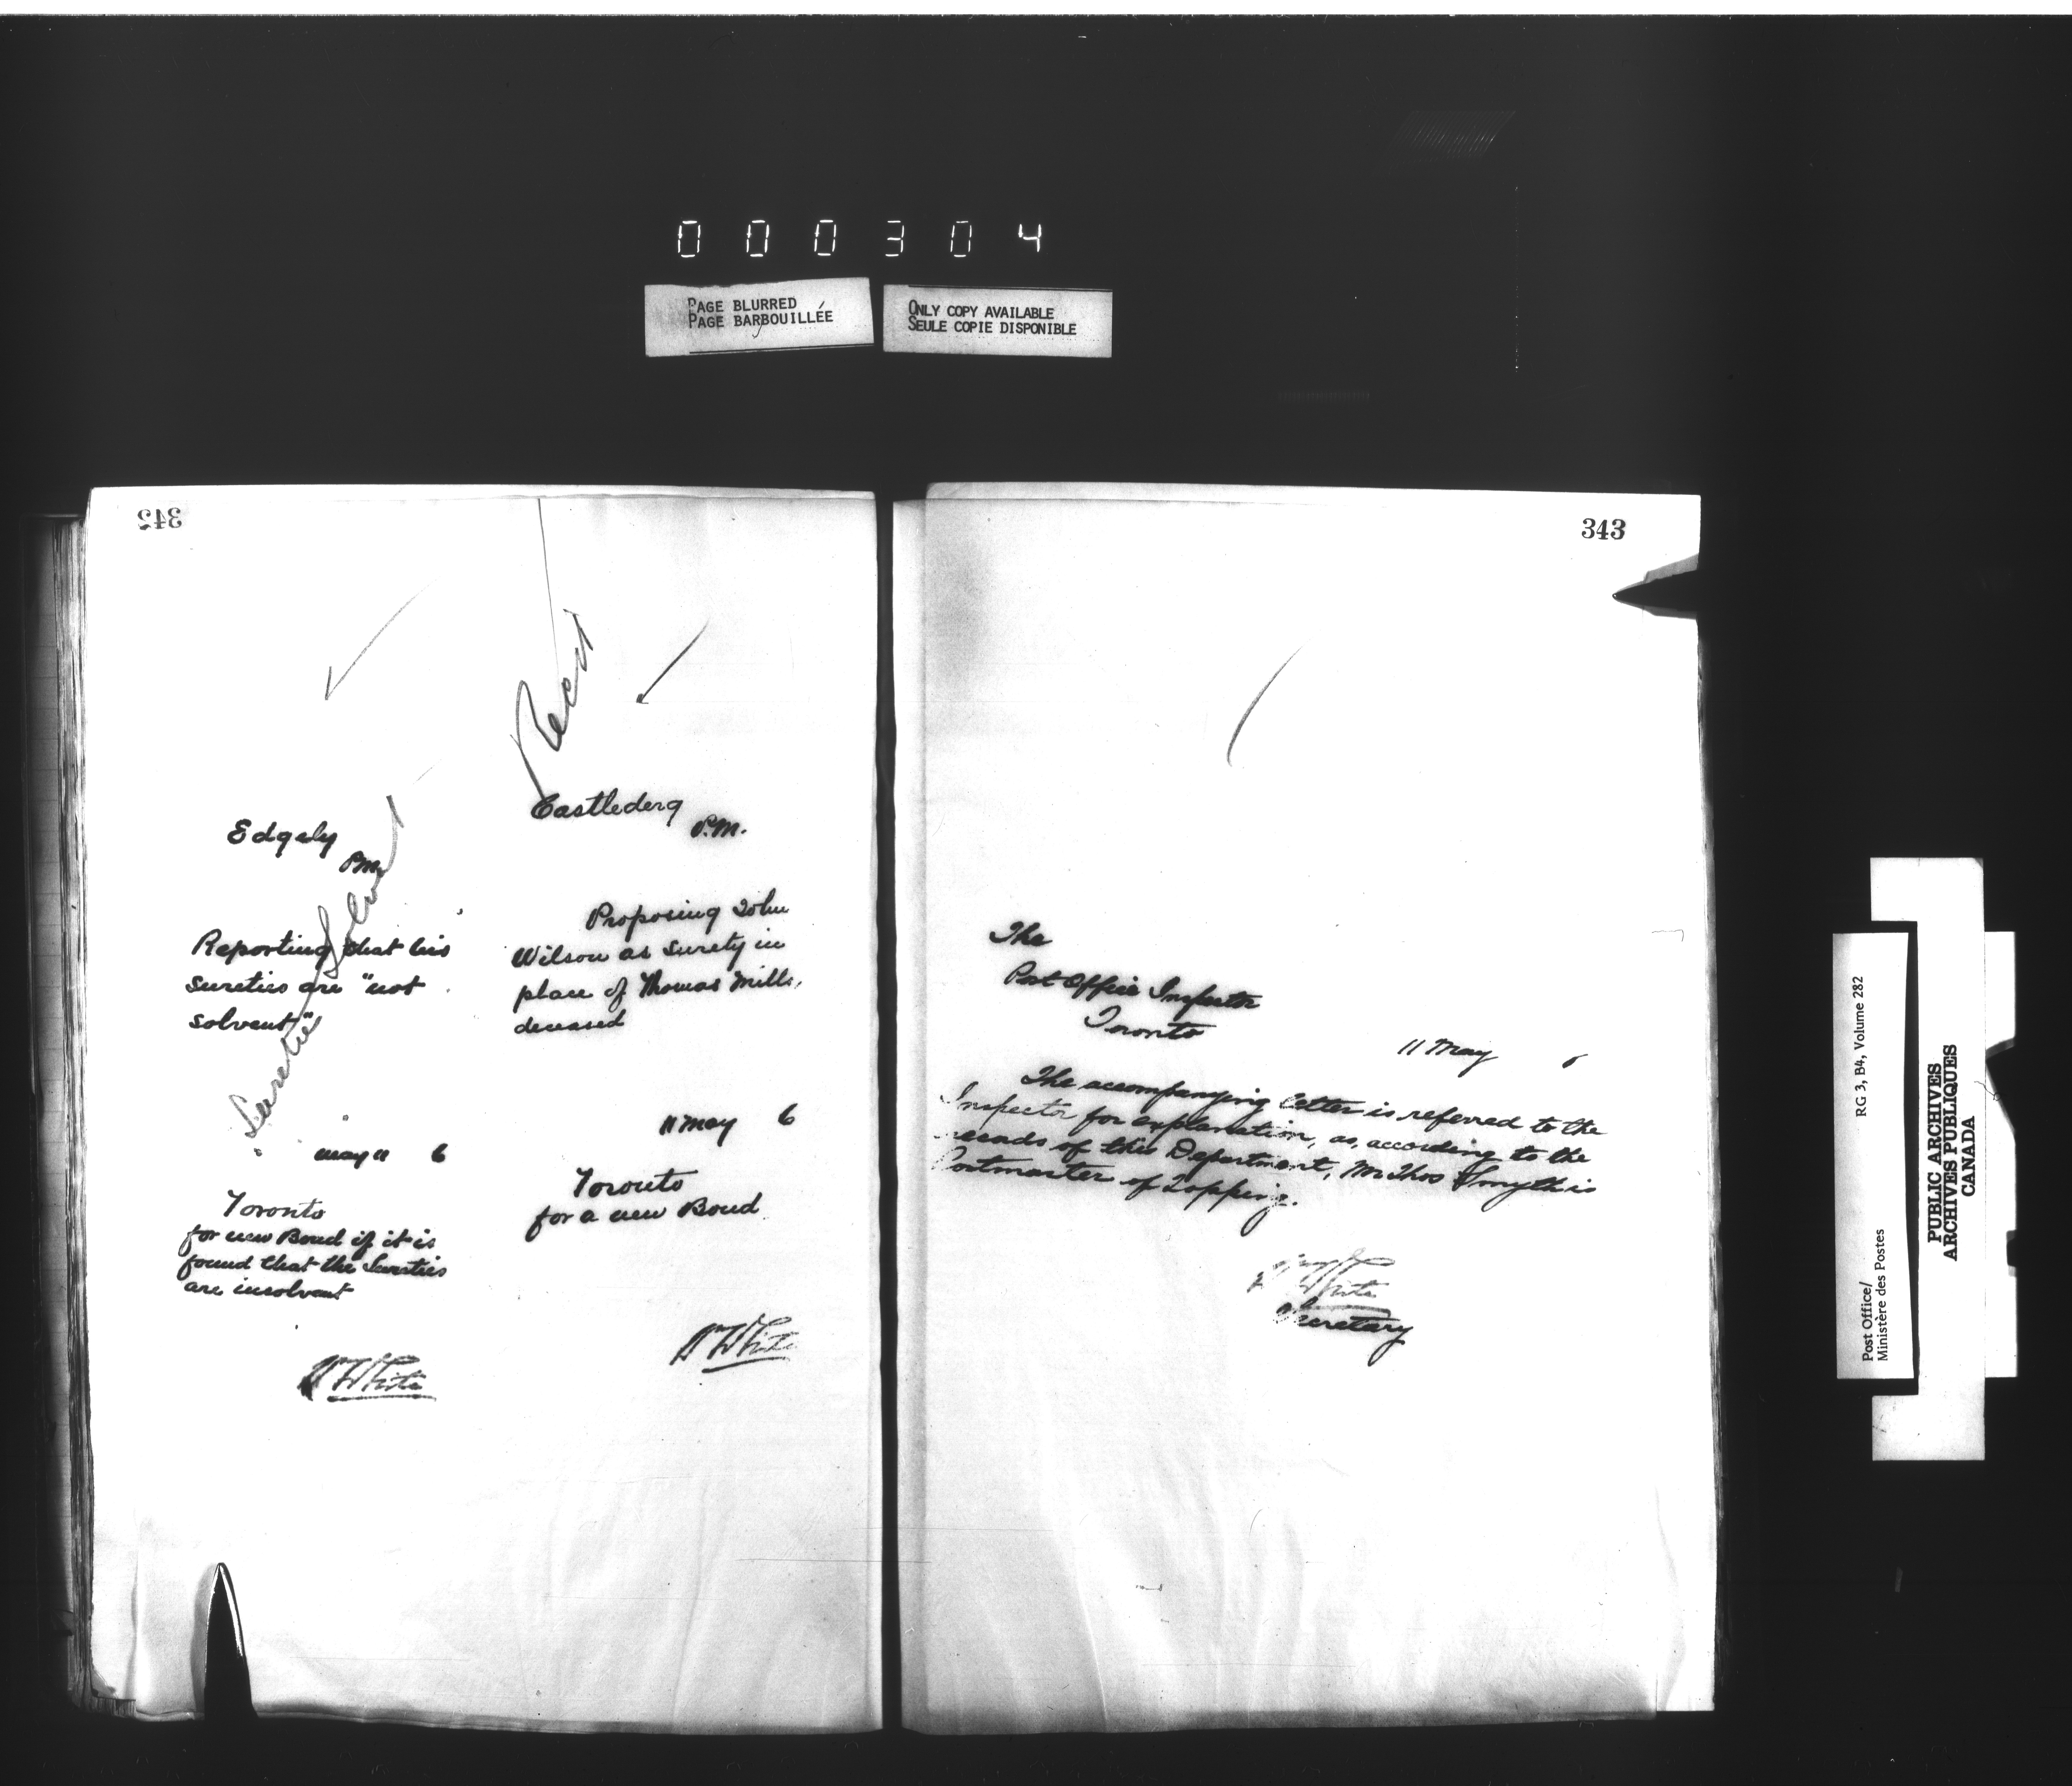 000304
PAGE BLURRED
PAGE BARBOUILLÉE
ONLY COPY AVAILABLE
SEULE COPIE DISPONIBLE
342
Edgely
P.M.
Reporting that his
sureties are "not
solvent"
Sureties Solvent
May 11 6
Toronto
for new Bond if it is
found that the Sureties
are insolvent
W White
Recd
Castlederg
P.M.
Proposing John
Wilson as surety in
place of Thomas Mills,
deceased
11 May 6
Toronto
for a new Bond
W White
343
The
Post Office Inspector
Toronto
11 May 6
The accompanying letter is referred to the
Inspector for explanation, as, according to the
records of this Department, Mr Thos Smyth is
Postmaster of Topping.
White
Secretary
RG 3, B4, Volume 282
Post Office/
Ministère des Postes
PUBLIC ARCHIVES
ARCHIVES PUBLIQUES
CANADA